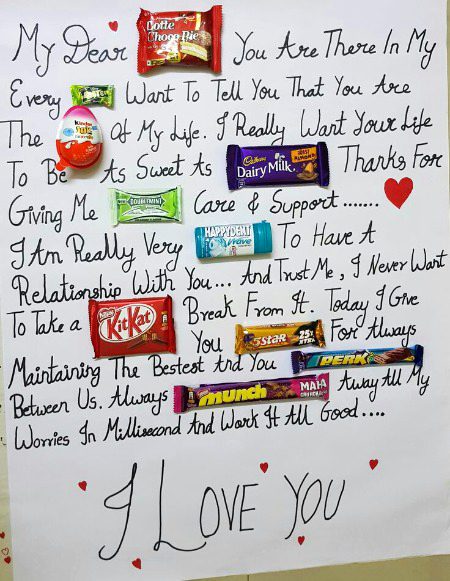 My Dear Lotte Choco Pie You Are There In My
Every Want To Tell You That You Are
The Kinder Joy Of My Life. I Really Want Your Life
To Be As Sweet As Cadbury Dairy Milk Thanks For
Giving Me DOUBLEMINT Care & Support.......
I Am Really Very HAPPYDENT Wave To Have A
Relationship With You... And Trust Me, I Never Want
To Take a Nestle KitKat Break From It. Today I Give
You 5Star For Always
Maintaining The Bestest And You PERK
Between Us. Always munch MAHA Away All My
Worries In Millisecond And Work It All Good....
I LOVE YOU